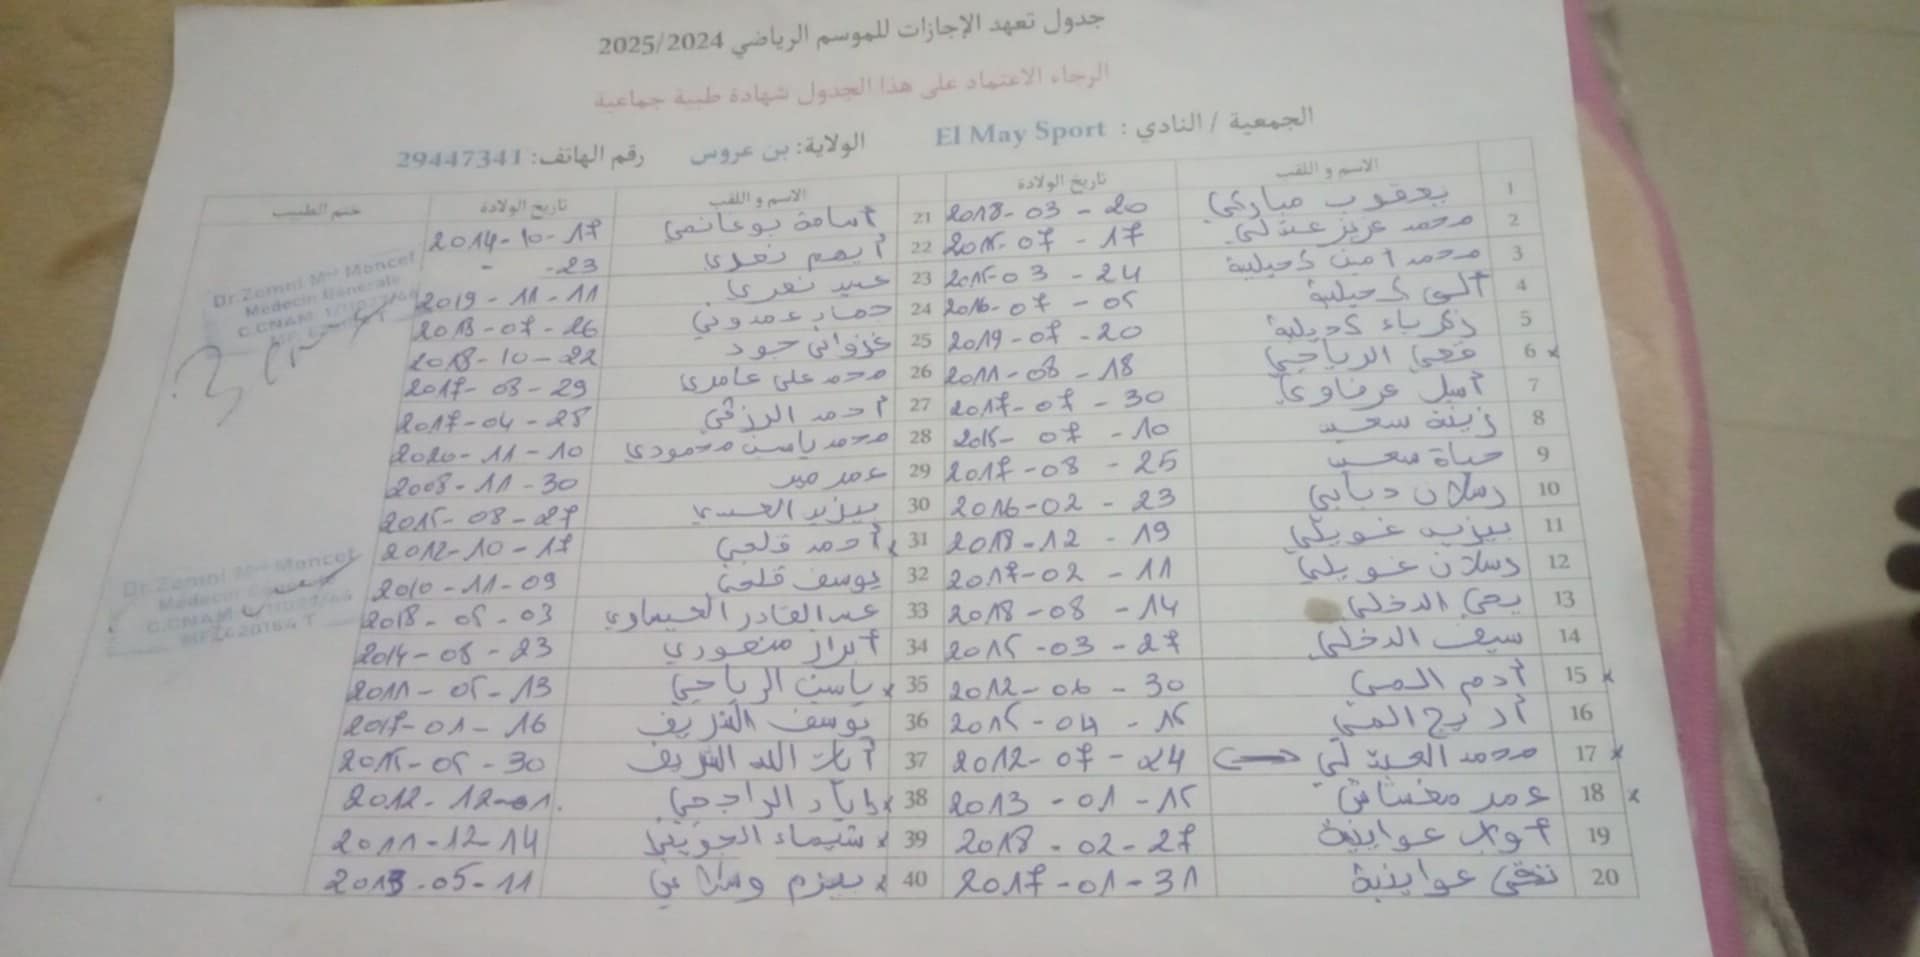 جدول تعهد الإجازات للموسم الرياضي 2025/2024
الرجاء الاعتماد على هذا الجدول شهادة طبية جماعية
الجمعية / النادي : El May Sport الولاية: بن عروس رقم الهاتف: 29447341
الاسم و اللقب تاريخ الولادة الاسم و اللقب تاريخ الولادة ختم الطبيب
1 يعقوب مباركي 2018-03-20 21 أسامة بوغانمي 2014-10-17
2 محمد عزيز 07-17 22 أيهم نفزي -23
3 محمد أمين كحيلية 2015-03-24 23 عبيد نفزي 2019-11-11
4 كحيلية 2016-07-05 24 عمدوني 07-26
5 زكرياء كحيلية 2019-07-20 25 غزواني جود 2018-10-22
6 الرياحي 2011-08-18 26 محمد علي عامري 2017-03-29
7 أسيل عرفاوي 2017-07-30 27 أحمد الرزقي 2017-04-28
8 زينة سعيد 2015-07-10 28 محمد ياسين محمودي 2020-11-10
9 حياة سعيد 2017-08-25 29 عمر 2008-11-30
10 رسلان دبابي 2016-02-23 30 يزيد 2015-08-27
11 يزيد غويلي 2018-12-19 31 أحمد قلجي 2012-10-17
12 رسلان غويلي 2017-02-11 32 يوسف قلجي 2010-11-09
13 يحي الدخلي 2018-08-14 33 عبد القادر العيساوي 2018-05-03
14 سيف الدخلي 2015-03-27 34 أبرار منصوري 2014-08-23
15 أدم المي 2012-06-30 35 ياسين الرياحي 2011-05-13
16 أريج المي 2015-04-15 36 يوسف الشريف 2017-01-16
17 محمد 2012-07-24 37 آيات الله الشريف 2015-05-30
18 عمر 2013-01-15 38 إياد الراجحي 2012-12-01
19 عواينية 2018-02-27 39 شيماء 2011-12-14
20 عواينية 2017-01-31 40 05-11
Dr.Zemni Med Moncef
Medecin Generale
Dr.Zemni Med Moncef